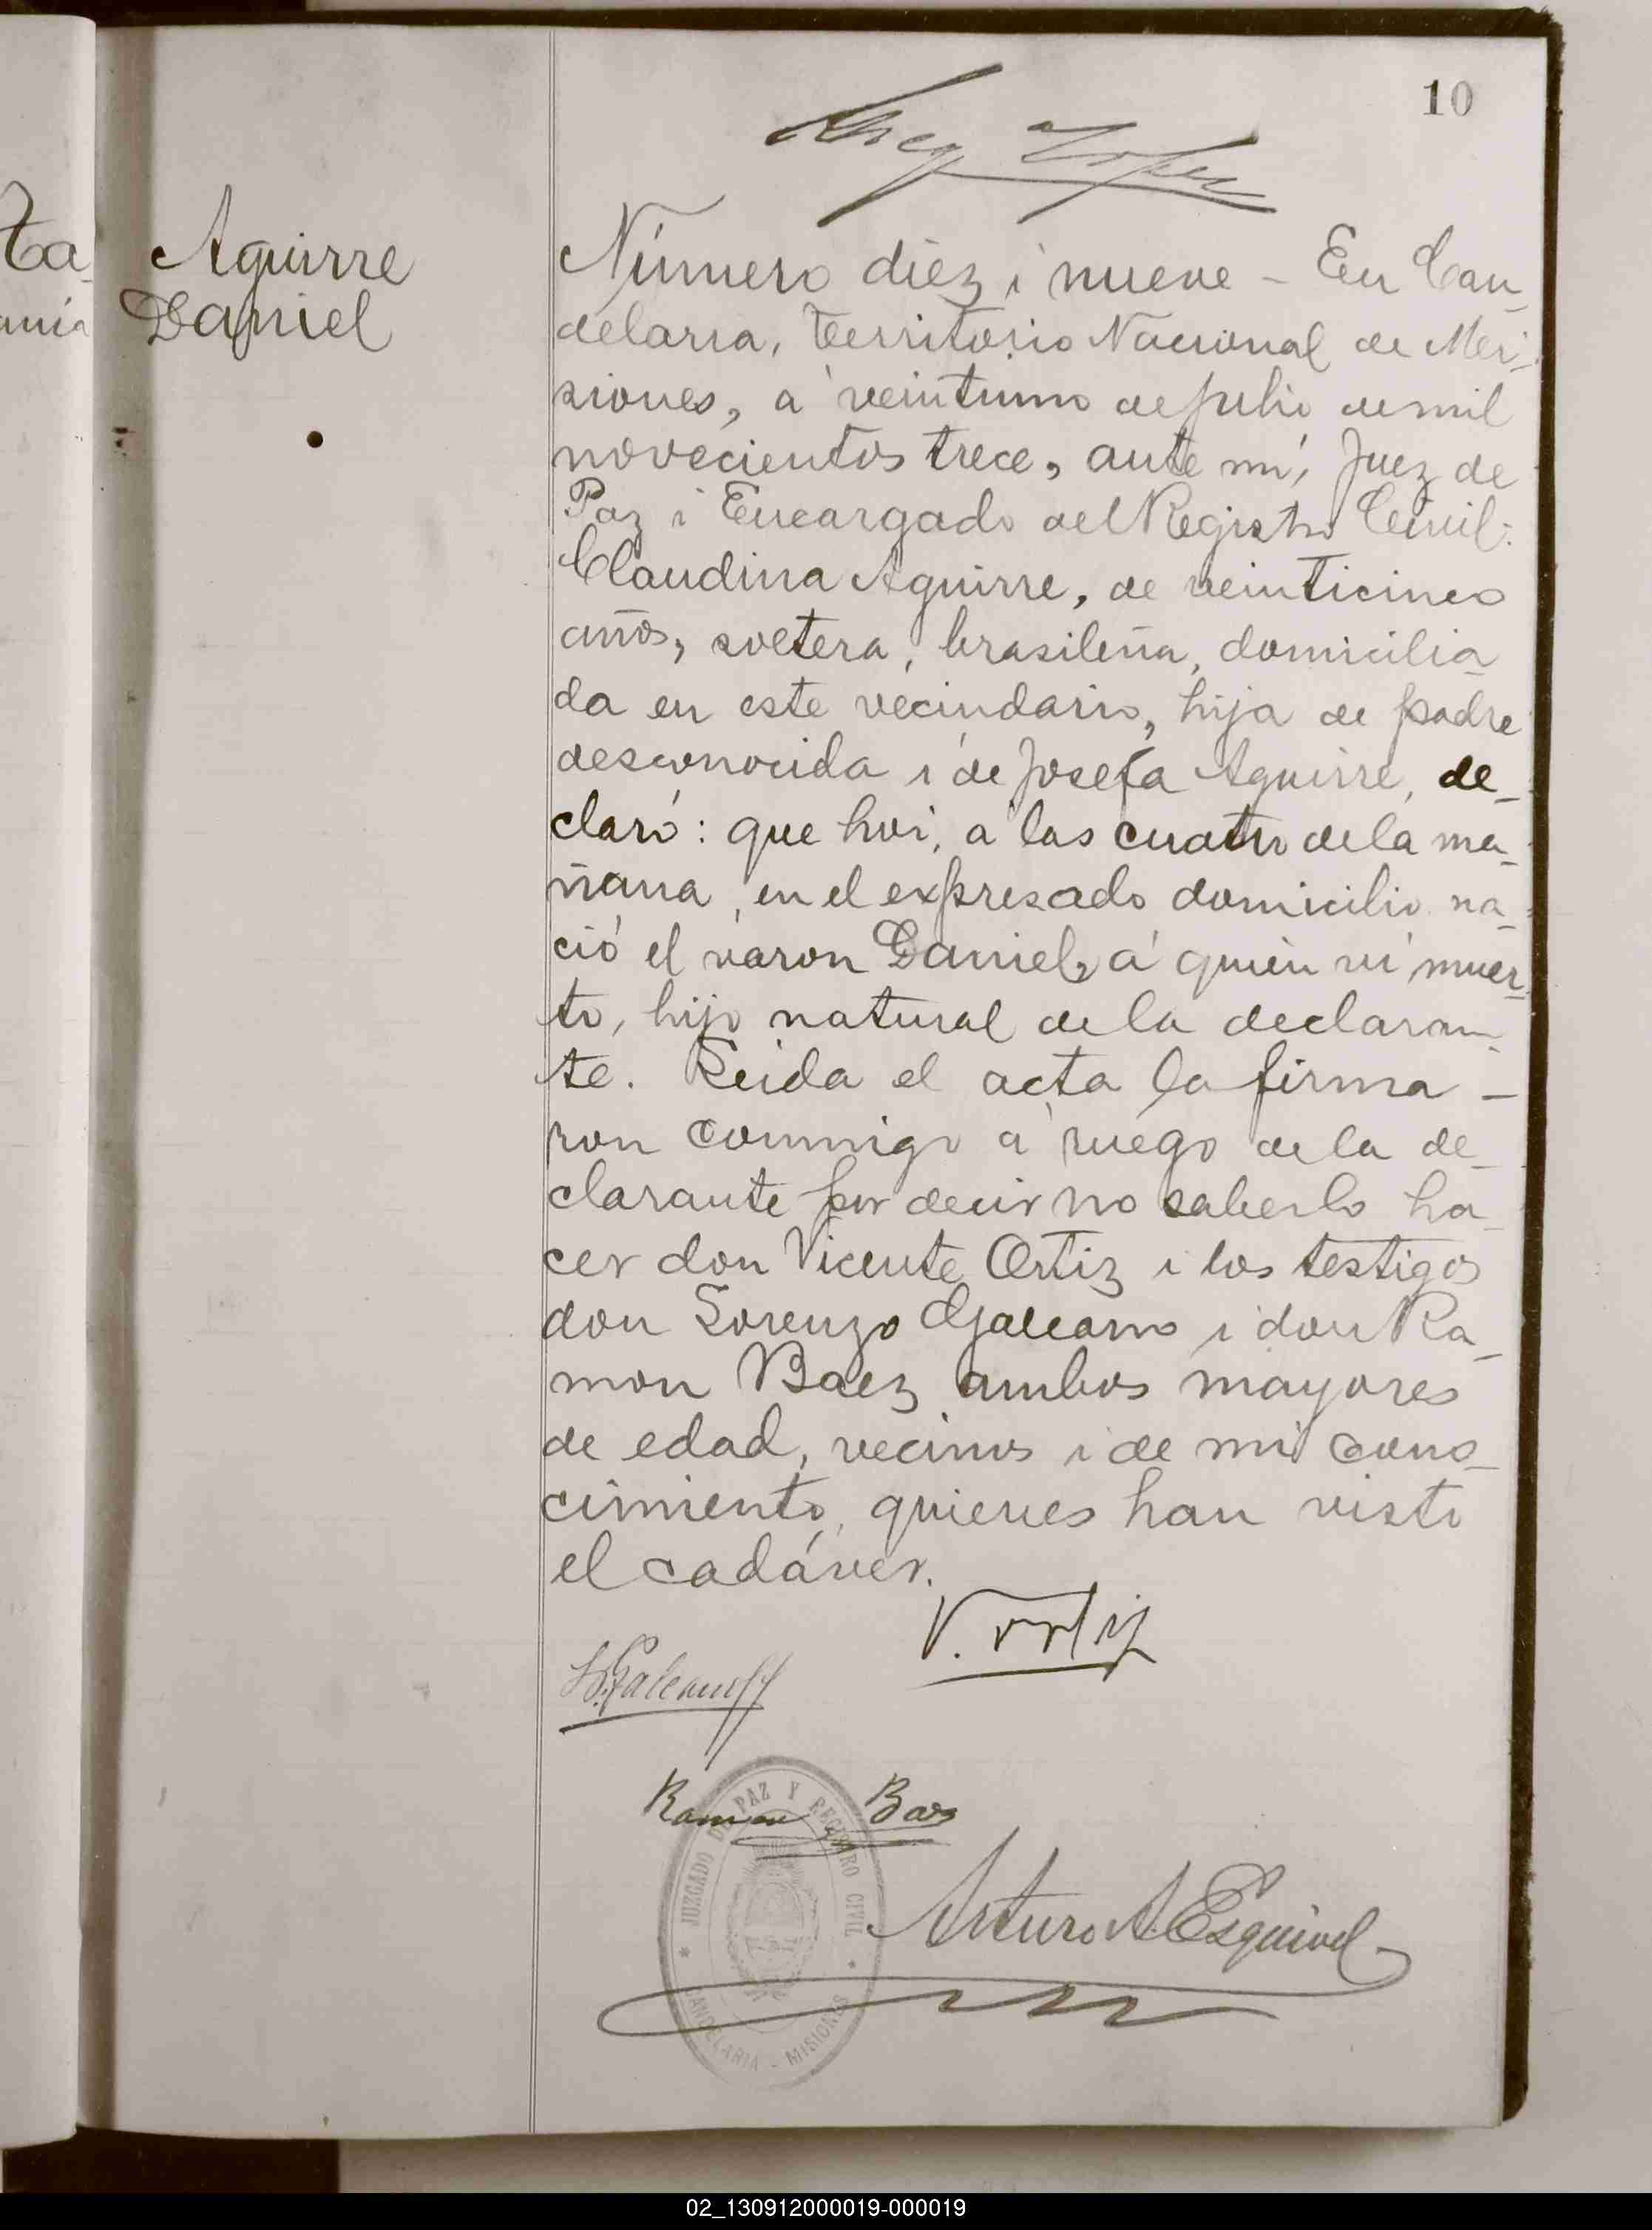 10
Ta
Aguirre
Daniel
Número diez i nueve - En Can_
delaria, Territorio Nacional de Mi_
siones, á veintiuno de julio de mil
novecientos trece, ante mí, Juez de
Paz i Encargado del Registro Civil:
Claudina Aguirre, de veinticinco
años, soltera, brasileña, domicilia_
da en este vecindario, hija de padre
desconocida i de Josefa Aguirre, de_
claró: que hoi, á las cuatro de la ma_
ñana, en el expresado domicilio na_
ció el varon Daniel, á quién ví muer_
to, hijo natural de la declaran_
te. Leida el acta la firma -
ron conmigo á ruego de la de_
clarante por decir no saberlo ha_
cer don Vicente Ortiz i los testigos
don Lorenzo Galeano i don Ra_
mon Baez ambos mayores
de edad, vecinos i de mi cono_
cimiento, quienes han visto
el cadáver.
V. Ortiz
L. Galeano
Ramon Baez
JUZGADO DE PAZ Y REGISTRO CIVIL
CANDELARIA - MISIONES
Arturo A. Esquivel
02_130912000019-000019